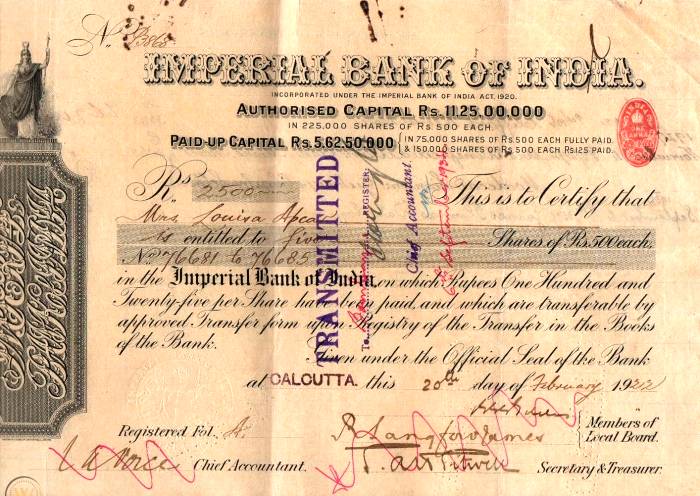 No. B3868
IMPERIAL BANK OF INDIA.
INCORPORATED UNDER THE IMPERIAL BANK OF INDIA ACT, 1920.
AUTHORISED CAPITAL Rs. 11,25,00,000
IN 225,000 SHARES OF Rs 500 EACH.
PAID-UP CAPITAL Rs. 5,62,50,000 { IN 75,000 SHARES OF Rs 500 EACH FULLY PAID.
& 150,000 SHARES OF Rs 500 EACH Rs 125 PAID.
INDIA
ONE ANNA
Rs 2500
This is to Certify that
Mrs Louisa Apcar
is entitled to five Shares of Rs. 500 each.
Nos 76681 to 76685
in the Imperial Bank of India, on which Rupees One Hundred and
Twenty-five per Share have been paid, and which are transferable by
approved Transfer form upon Registry of the Transfer in the Books
of the Bank.
Given under the Official Seal of the Bank
at CALCUTTA. this 20th day of February 1922
TRANSMITTED
REGISTER.
Chief Accountant.
Registered Fol. A.
Members of
Local Board.
Chief Accountant.
Secretary & Treasurer.